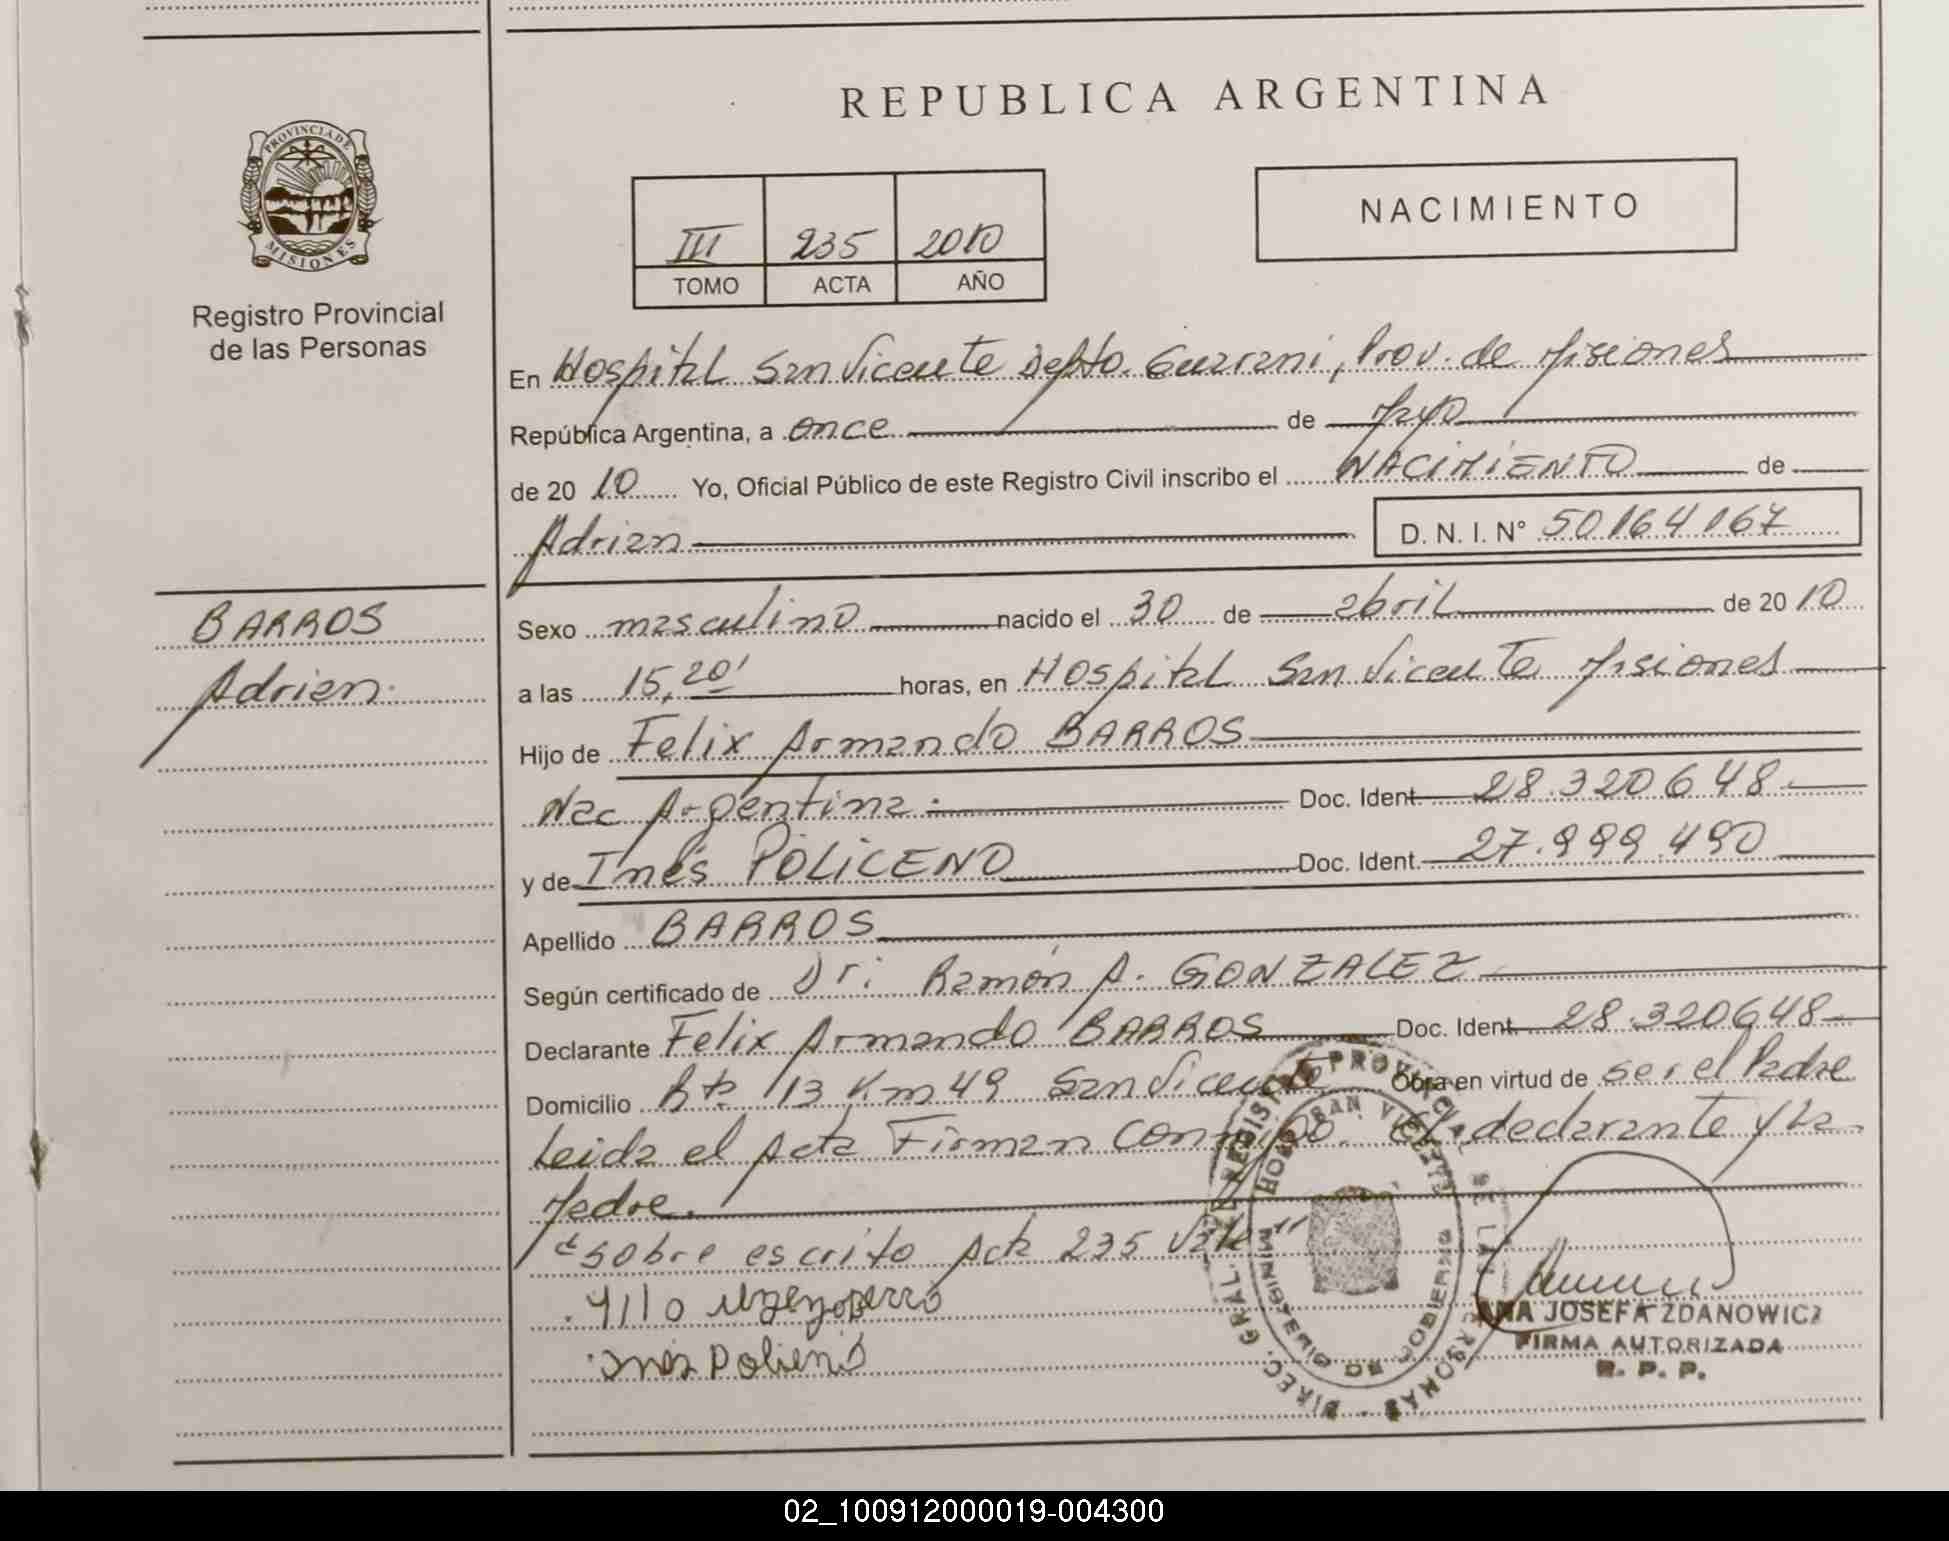 REPUBLICA ARGENTINA
PROVINCIA DE MISIONES
Registro Provincial
de las Personas
III 235 2010
TOMO ACTA AÑO
NACIMIENTO
En Hospital San Vicente Depto. Guarani, Prov. de Misiones
República Argentina, a once de Mayo
de 20 10 Yo, Oficial Público de este Registro Civil inscribo el NACIMIENTO de
Adrian D. N. I. N° 50164167
BARROS
Adrian.
Sexo masculino nacido el 30 de abril de 20 10
a las 15,20' horas, en Hospital San Vicente Misiones
Hijo de Felix Armando BARROS
Nac Argentina. Doc. Ident 28.320648
y de Inés POLICENO Doc. Ident. 27.999.490
Apellido BARROS
Según certificado de Dr: Ramón A. GONZALEZ
Declarante Felix Armando BARROS Doc. Ident 28.320648
Domicilio Rta 13 Km 49 San Vicente Obra en virtud de ser el Padre
Leida el Acta Firman Conmigo. El declarante y la
Madre.
sobre escrito Acta 235 Vale"
Policeno
REGISTRO PROVINCIAL DE LAS PERSONAS - DIREC. GRAL.
HOSP. SAN VICENTE
MINISTERIO DE GOBIERNO
ANA JOSEFA ZDANOWICZ
FIRMA AUTORIZADA
R. P. P.
02_100912000019-004300